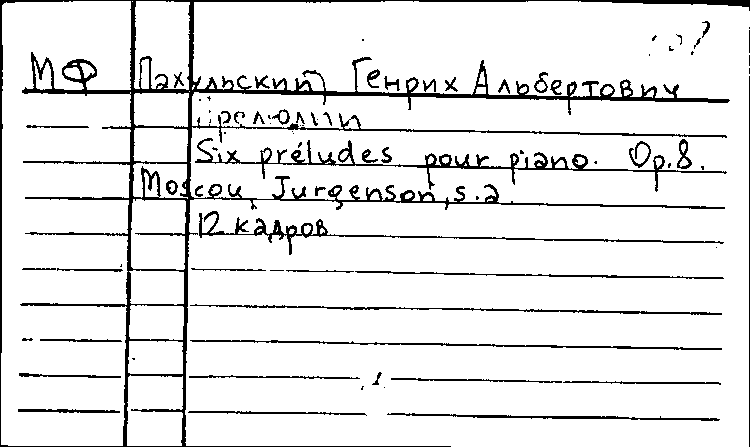 МФ Пахульский, Генрих Альбертович
Прелюдии
Six préludes pour piano. Op.8.
Moscou, Jurgenson, s.a.
12 кадров
1